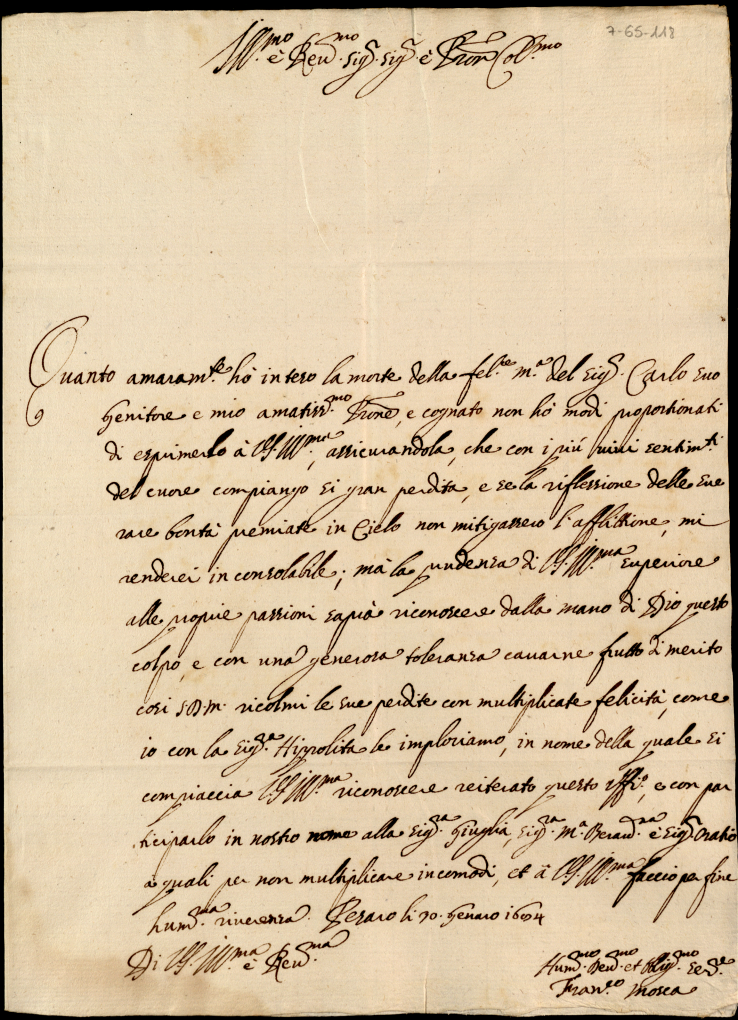 7-65-118
Ill.mo è Reu.mo Sig.r Sig.r è Pron Col.mo
Quanto amaram.te hò inteso la morte della fel.ce m.a del Sig.r Carlo suo
Genitore e mio amatiss.mo Prone, e cognato non hò modi proportionati
di esprimerlo à VS. Ill.ma, assicurandola, che con i più viui sentim.ti
del cuore compiango si gran perdita, e se la riflessione delle sue
rare bontà premiate in Cielo non mitigassero l'afflittione, mi
renderei inconsolabile; mà la prudenza di VS. Ill.ma superiore
alle proprie passioni saprà riconoscere dalla mano di Dio questo
colpo, e con una generosa toleranza cauarne frutto di merito
cosi S.D.M. ricolmi le sue perdite con multiplicate felicità, come
io con la Sig.ra Hippolita le imploriamo, in nome della quale si
compiaccia VS. Ill.ma riconoscere reiterato questo uffi.o, e con par
ticiparlo in nostro nome alla Sig.ra Giuglia, Sig.ra M.a Berard.na è Sig.r Oratio
à quali per non multiplicare incomodi, et à VS. Ill.ma faccio per fine
hum.ma riuerenza. Pesaro li 20. Genaro 1694
Di VS. Ill.ma è Reu.ma
Hum.mo Deu.mo et Oblig.mo Se.re
Fran.co Mosca